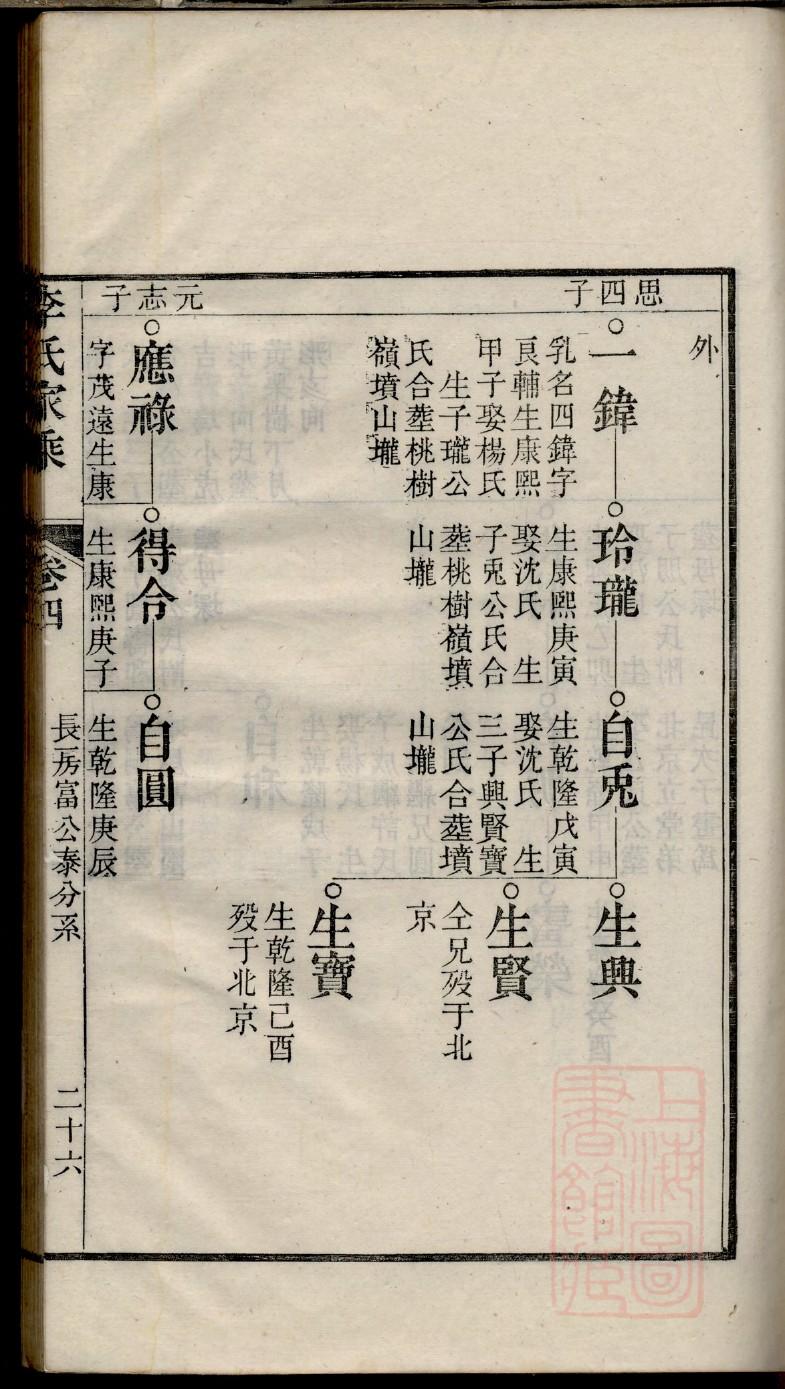 思四子
外
一鍏
乳名四鍏字
良輔生康熙
甲子娶楊氏
生子瓏公
氏合塟桃樹
嶺墳山壠
玲瓏
生康熙庚寅
娶沈氏 生
子兎公氏合
塟桃樹嶺墳
山壠
自兎
生乾隆戊寅
娶沈氏 生
三子興賢寶
公氏合塟墳
山壠
生興
生賢
仝兄殁于北
京
生寶
生乾隆己酉
殁于北京
元志子
應祿
字茂遠生康
得令
生康熙庚子
自圓
生乾隆庚辰
李氏家乘
卷四
長房富公泰分系
二十六
上海圖
書館藏